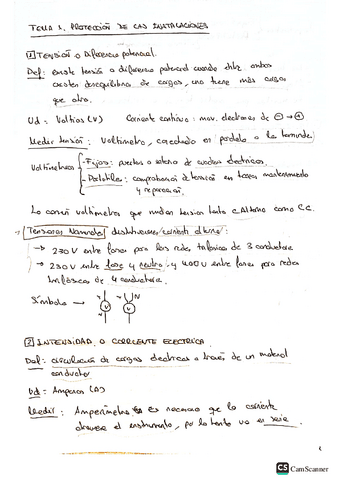 TEMA 1. PROTECCIÓN DE LAS INSTALACIONES
1 TENSIÓN o Diferencia potencial.
Def: existe tensión o diferencia potencial cuando entre ambos
existe desequilibrio de cargas, uno tiene más cargas
que otro.
Ud = Voltios (V) Corriente continua: mov. electrones de ⊖ → ⊕
Medir tensión: Voltímetro, conectado en paralelo a la
Voltímetros - Fijos: puertas o exterior de cuadros eléctricos.
- Portátiles: comprobación de tensión en tareas mantenimiento
y reparación.
Lo común voltímetros que midan tension tanto C.Alterna como C.C.
Tensiones Normales distribuciones corriente alterna:
→ 230V entre fases para las redes trifásicas de 3 conductores
→ 230V entre fase y neutro y 400V entre fases para redes
trifásicas de 4 conductores.
Símbolo → V V N
2 INTENSIDAD o CORRIENTE ELECTRICA.
Def: circulación de cargas electricas a través de un material
conductor
Ud = Amperios (A)
Medir: Amperímetro es necesario que la corriente
atraviese el instrumento, por lo tanto va en serie.
CS CamScanner